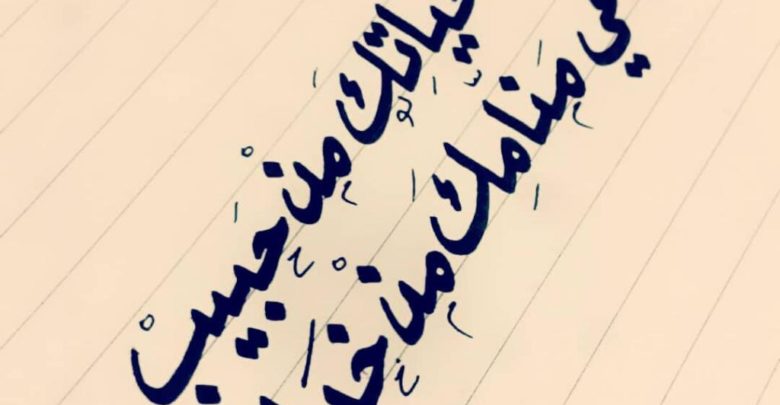 حياتِكَ مِنْ حَبيبْ
مَنامِكَ مِنْ